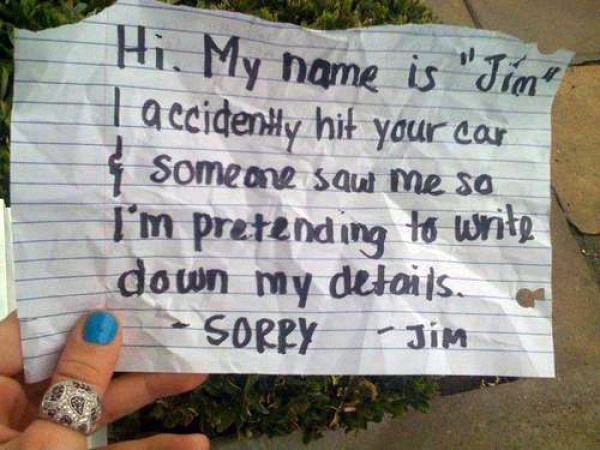 Hi. My name is "Jim"
I accidently hit your car
& someone saw me so
I'm pretending to write
down my details.
- SORRY - Jim